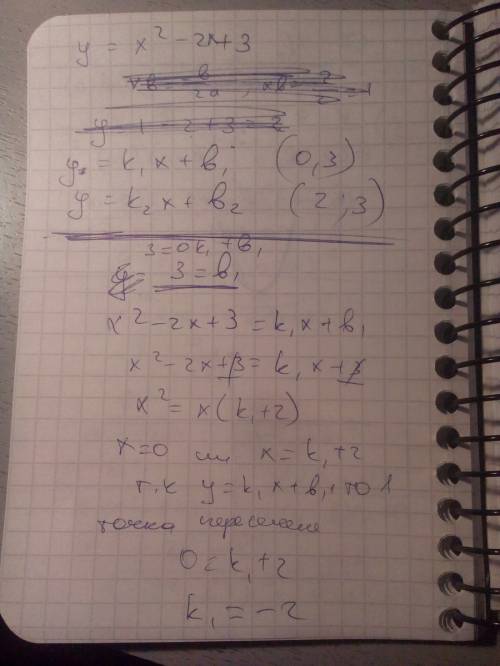 y = x² - 2x + 3
y = 1 - 2 + 3 = 2
y = k₁x + b₁ (0,3)
y = k₂x + b₂ (2;3)
3 = 0k₁ + b₁
3 = b₁
x² - 2x + 3 = k₁x + b₁
x² - 2x + 3 = k₁x + 3
x² = x(k₁+2)
x=0 или x = k₁+2
т.к y = k₁x + b₁, то 1
точка пересечения
0 = k₁+2
k₁ = -2